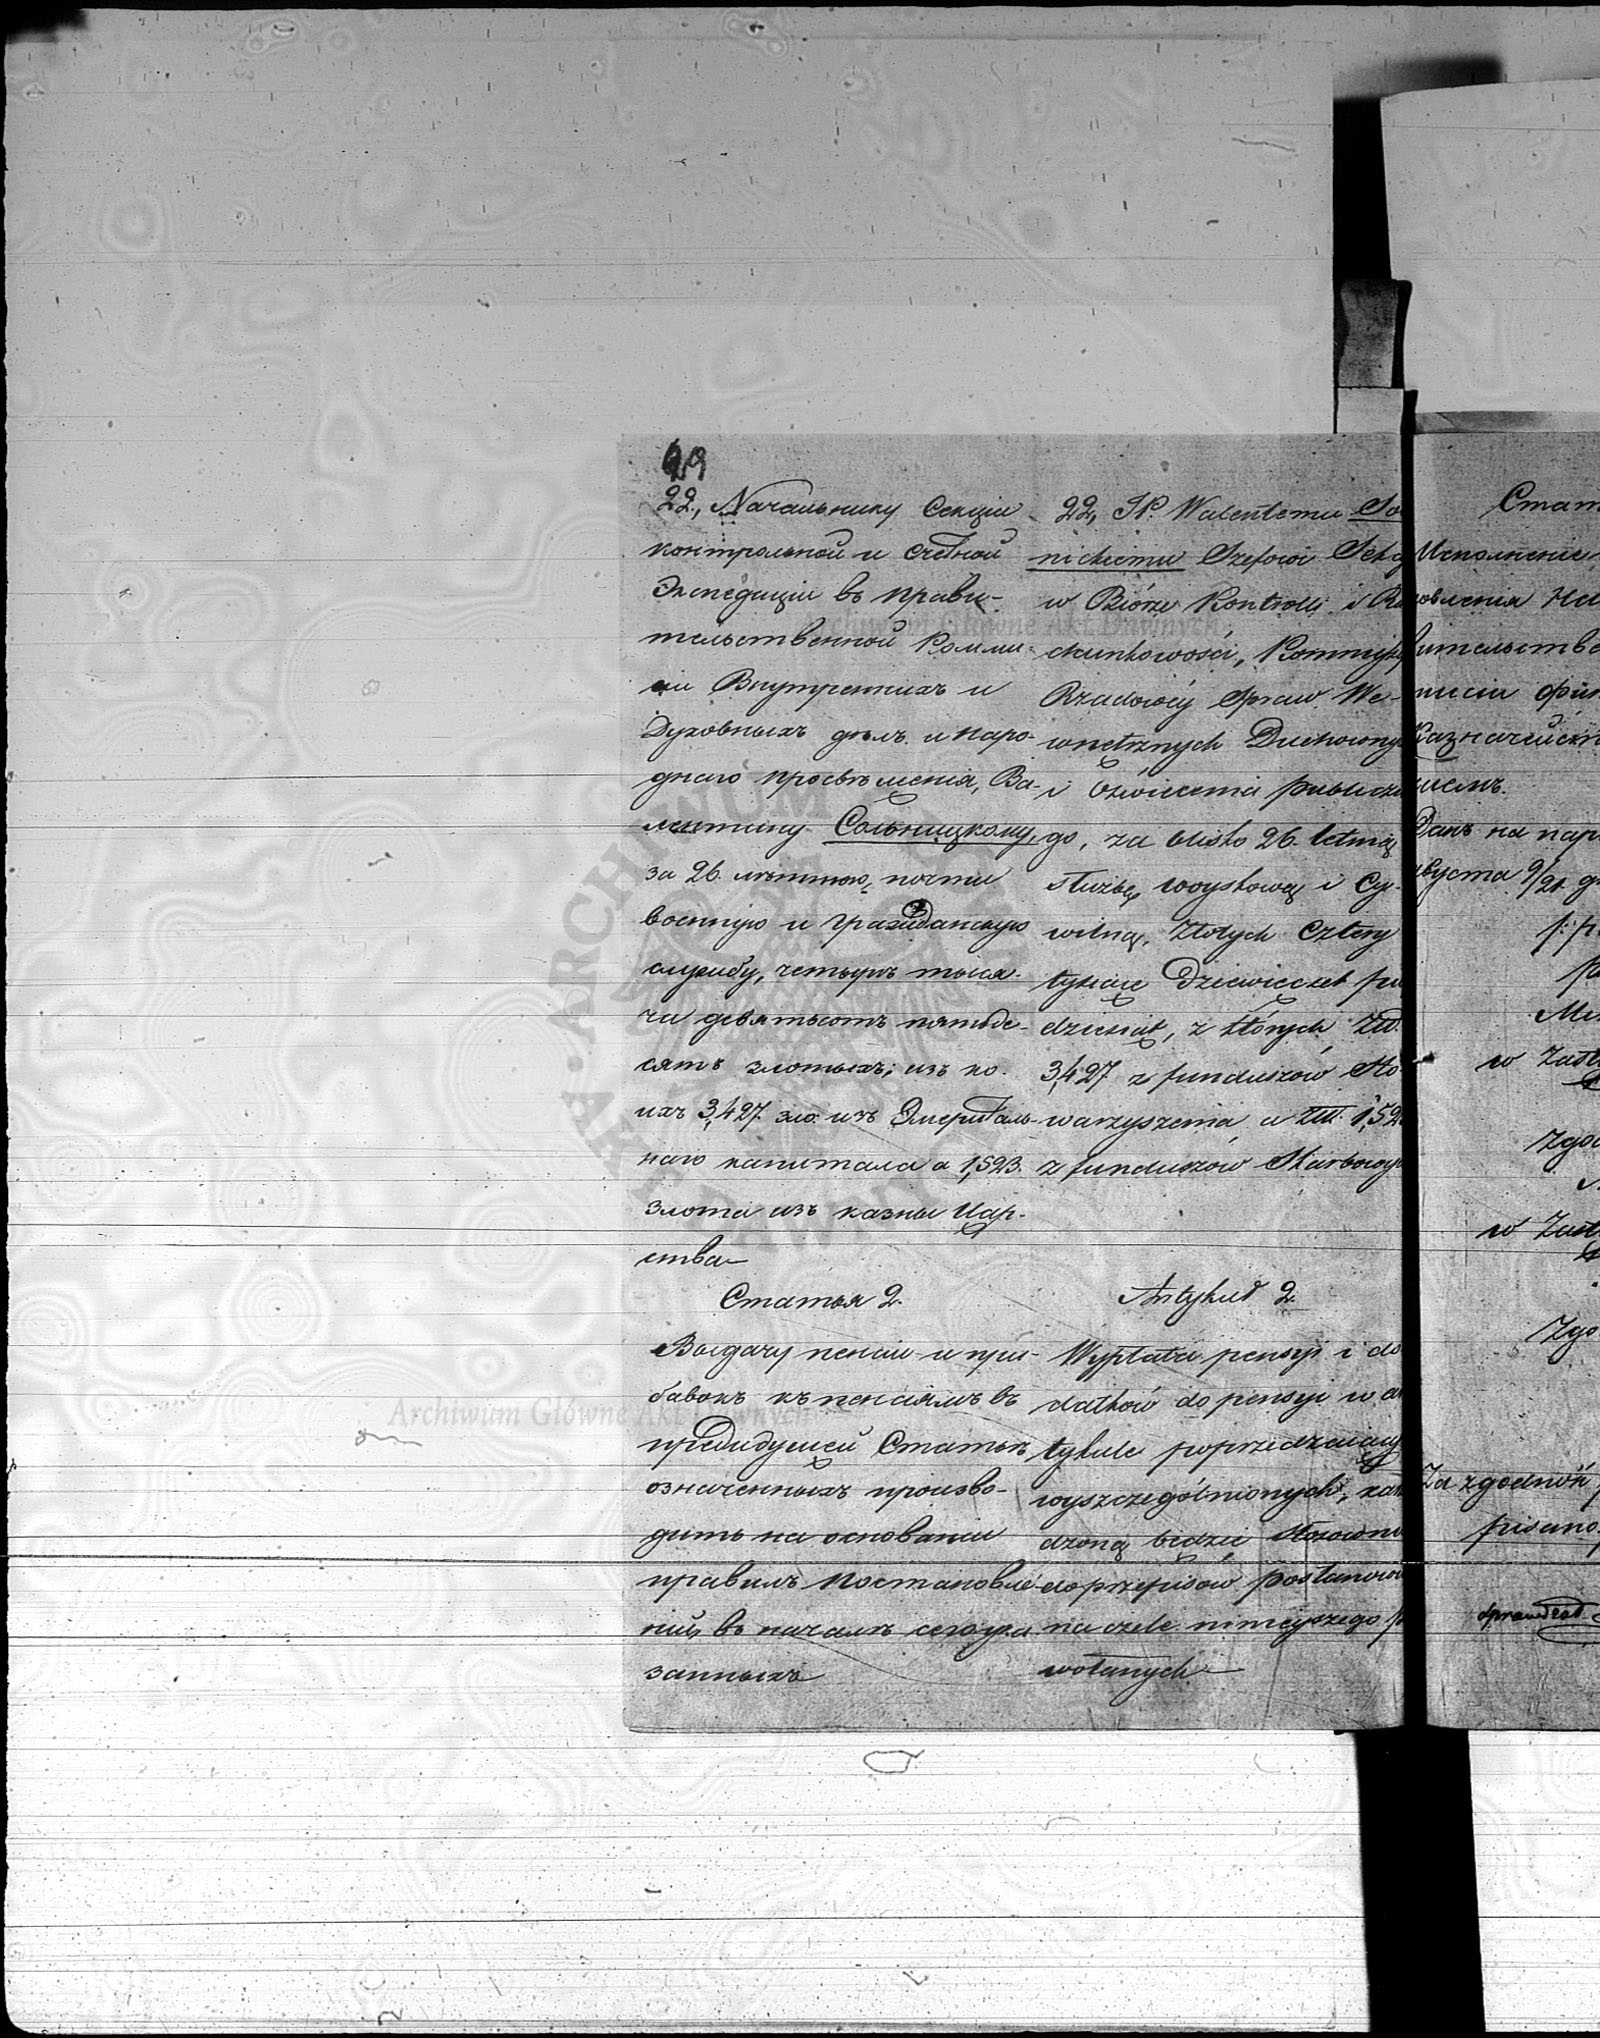 22, Начальнику Секціи
контрольной и счетной
Экспедиціи въ Прави-
тельственной Комми-
сіи Внутреннихъ и
Духовныхъ дѣлъ и наро-
днаго просвѣщенія, Ва-
лентину Сольницкому,
за 26 лѣтнюю почти
военную и гражданскую
службу, четыре тыся-
чи девятьсотъ пятьде-
сятъ злотыхъ; изъ ко-
ихъ 3,427 зло: изъ Эмериталь-
наго капитала а 1,523
злота изъ казны Цар-
ства
Статья 2.
Выдачу пенсіи и при-
бавокъ къ пенсіямъ въ
предидущей Статьѣ
означенныхъ произво-
дить на основаніи
правилъ Постановле-
ній, въ началѣ сего ука-
занныхъ
22, JP. Walentemu So
nickiemu Szefowi Sekc
w Biórze Kontrolli i Ra
chunkowości, Kommissy
Rządowéj Spraw We-
wnętrznych Duchowny
i Oświecenia publiczne
go, za blisko 26 letnią
służbę woyskową i Cy-
wilną, Złotych Cztery
tysiące Dziewięćset pię
dziesiąt, z których Złt.
3,427 z funduszów Sto-
warzyszenia, a Złt. 1,52
z funduszów Skarbowy
Artykuł 2.
Wypłata pensyi i do
datków do pensyi w ar
tykule poprzedzający
wyszczególnionych, zarzą
dzoną będzie stosownie
do przepisów postanowi
na czele niniejszego p
wołanych
Стат
Исполненіе
новленія На
вительстве
мисіи Фин
Казначейск
щемъ.
Данъ на
Августа 9/21
w Zast
Zgo
w Zast
Zgo
Za zgodność
pisano
Sprawdzał